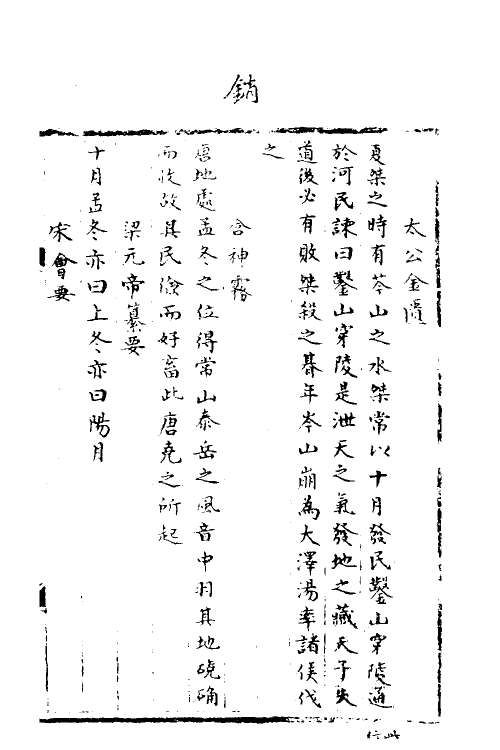 銷
太公金匱
夏桀之時有岑山之水桀常以十月發民鑿山穿陵通
於河民諫曰鑿山穿陵是泄天之氣發地之藏天子失
道後必有敗桀殺之朞年岑山崩為大澤湯率諸侯伐
之
含神霧
唐地處孟冬之位得常山泰岳之風音中羽其地磽确
而收故其民儉而好畜此唐堯之所起
梁元帝纂要
十月孟冬亦曰上冬亦曰陽月
宋會要